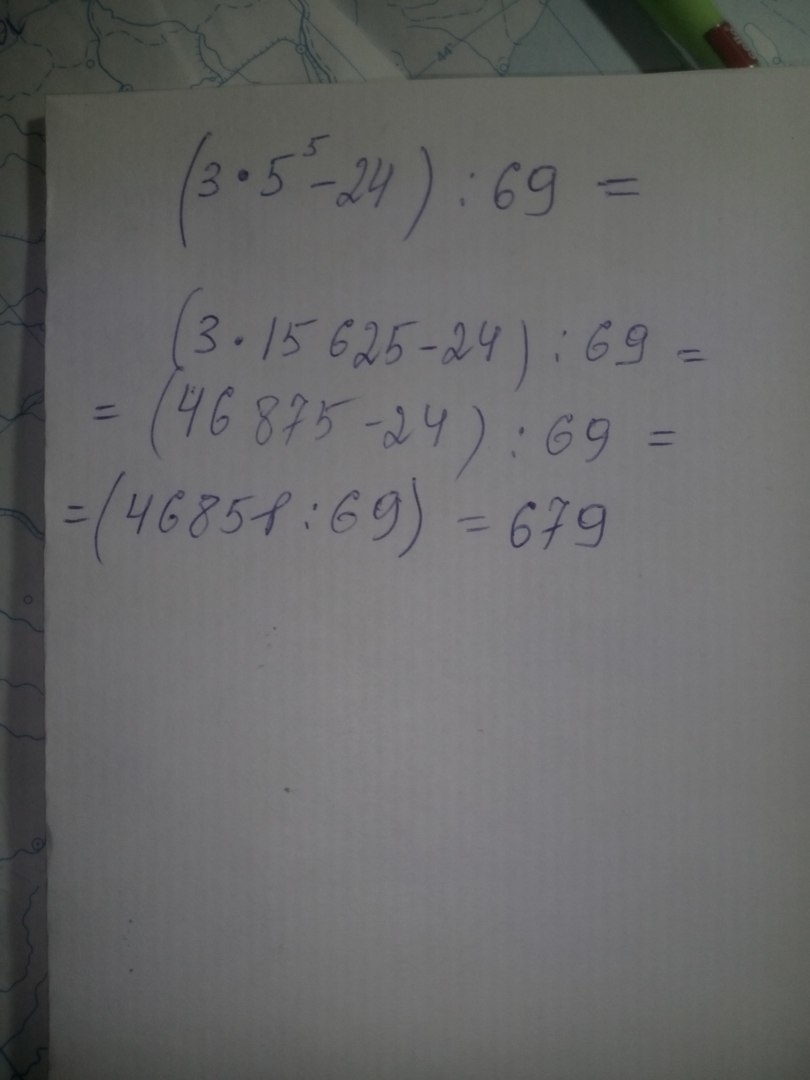 (3·5⁵-24):69=
(3·15 625-24):69=
=(46 875-24):69=
=(46851:69)=679